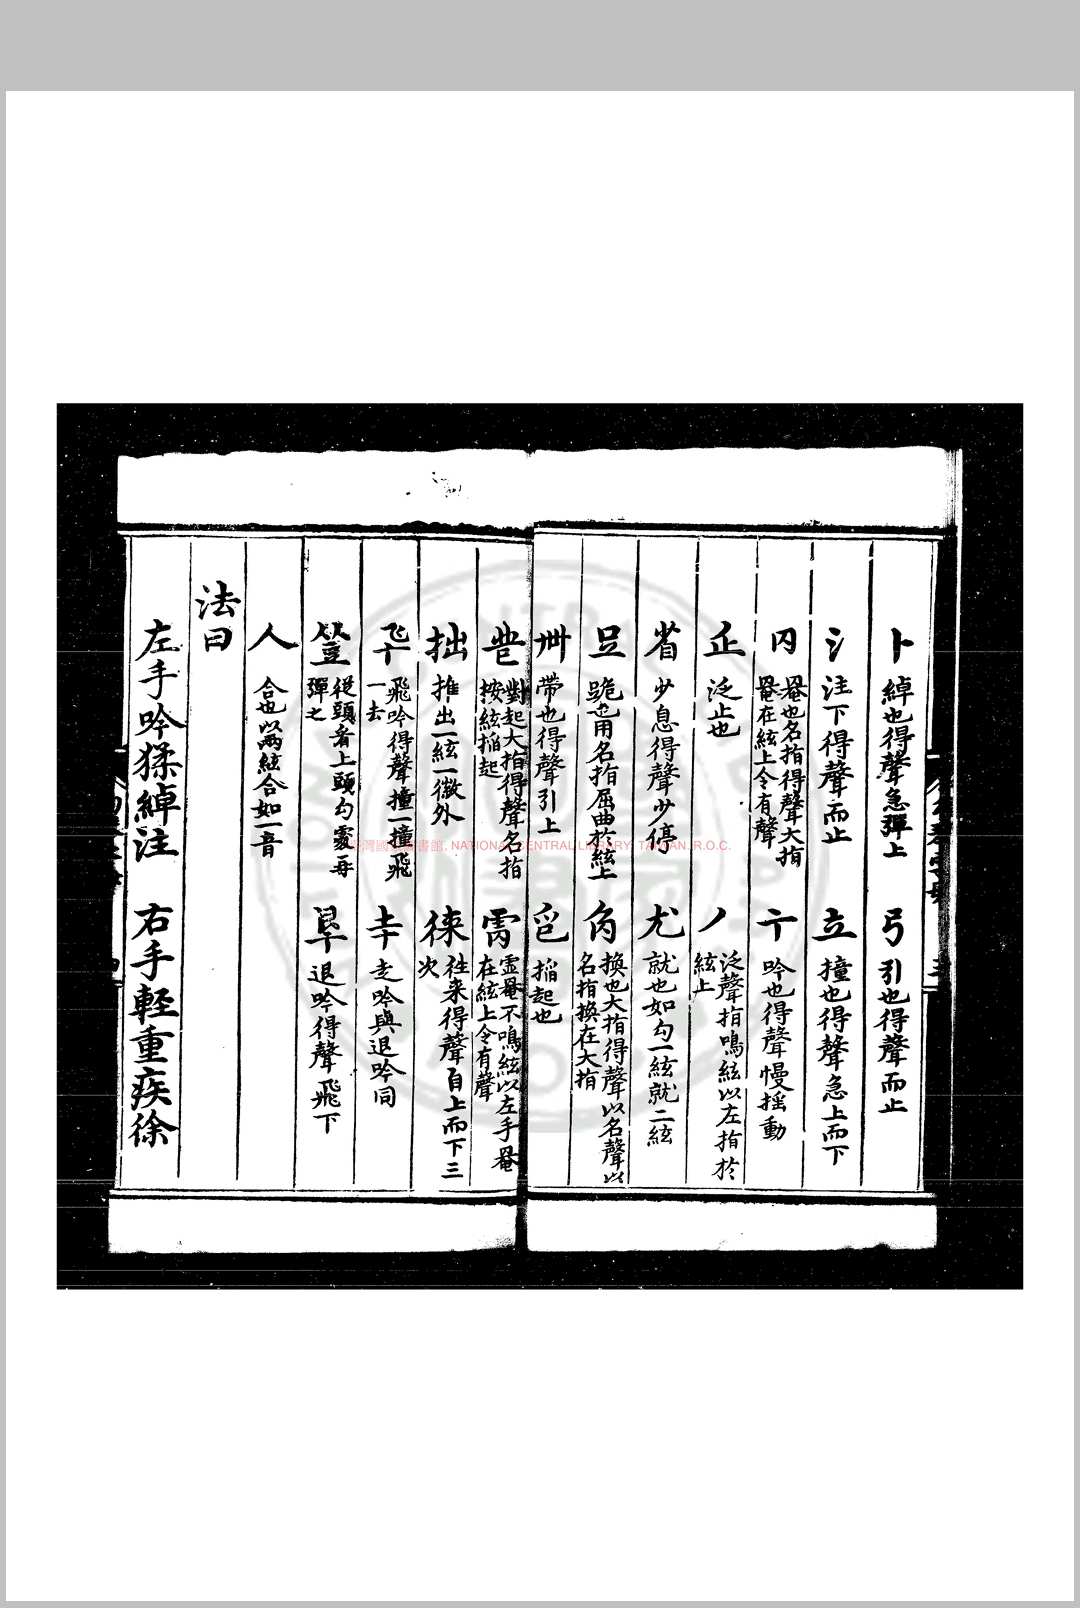 卜 綽也得聲急彈上 弓 引也得聲而止
氵 注下得聲而止 立 撞也得聲急上而下
罨也名指得聲大指
罨在絃上令有聲
亍 吟也得聲慢揺動
正 泛止也 丿 泛聲指鳴絃以左指於
絃上
省 少息得聲少停 尤 就也如勾一絃就二絃
跪也用名指屈曲於絃上
換也大指得聲以名聲以
名指換在大指
卅 帶也得聲引上
掐起也
對起大指得聲名指
按絃掐起
虛罨不鳴絃以左手罨
在絃上令有聲
拙 推出一絃一徽外 徕 徃来得聲自上而下三
次
飛吟得聲撞一撞飛
一去
走吟與退吟同
從頭看上頭勾處再
彈之
退吟得聲飛下
人 合也以兩絃合如一音
法曰
左手吟猱綽注 右手輕重疾徐
國家圖書館. NATIONAL CENTRAL LIBRARY, TAIWAN, R.O.C.